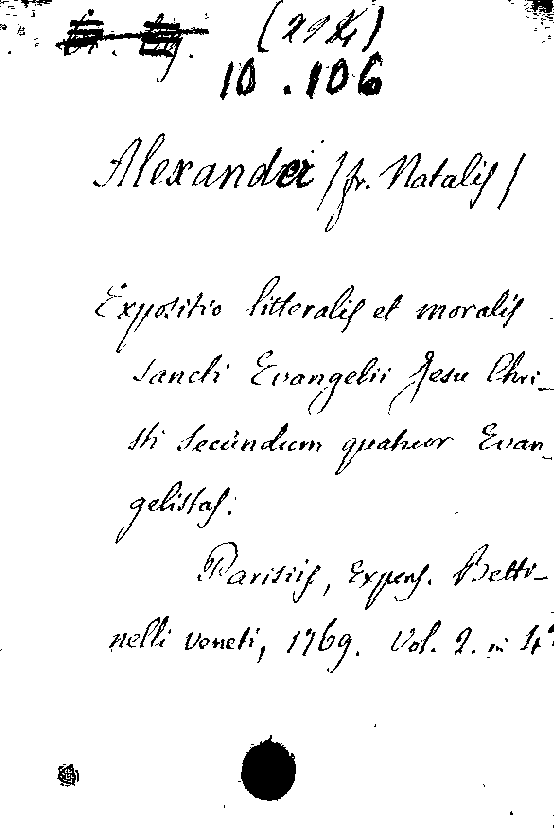 10.106
Alexander /fr. Natalis/
Expositio litteralis et moralis
sancti Evangelii Jesu Chri-
sti secundum quatuor Evan-
gelistas.
Parisiis, Expens. Betti-
nelli veneti, 1769. Vol. 2. in 4°